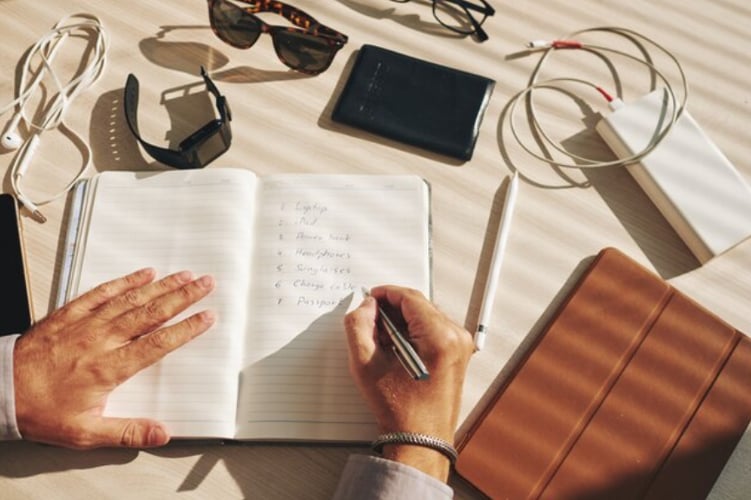 1. Laptop
2. iPad
3. Power bank
4. Headphones
5. Sunglasses
6. Charge cable
7. Passport